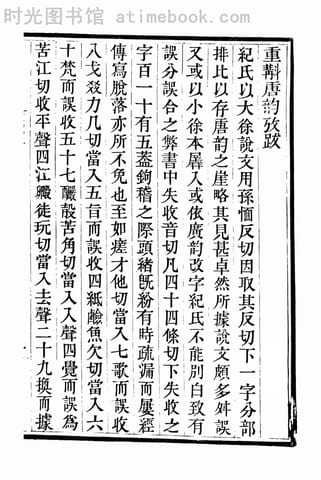 时光图书馆 - atimebook.com
重斠唐韵攷跋
紀氏以大徐說文用孫愐反切因取其反切下一字分部
排比以存唐韵之崖略其見甚卓然所據說文頗多舛誤
又或以小徐本羼入或依廣韵改字紀氏不能别白致有
誤分誤合之弊書中失收音切凡四十四條切下失收之
字百一十有五葢鉤稽之際頭緒旣紛有時疏漏而屢經
傳寫脫落亦所不免也至如瘥才他切當入七歌而誤收
八戈力几切當入五旨而誤收四紙鹼魚欠切當入六
十梵而誤收五十七釅㱿苦角切當入入聲四覺而誤爲
苦江切收平聲四江毈徒玩切當入去聲二十九換而據
时光图书馆 - atimebook.com